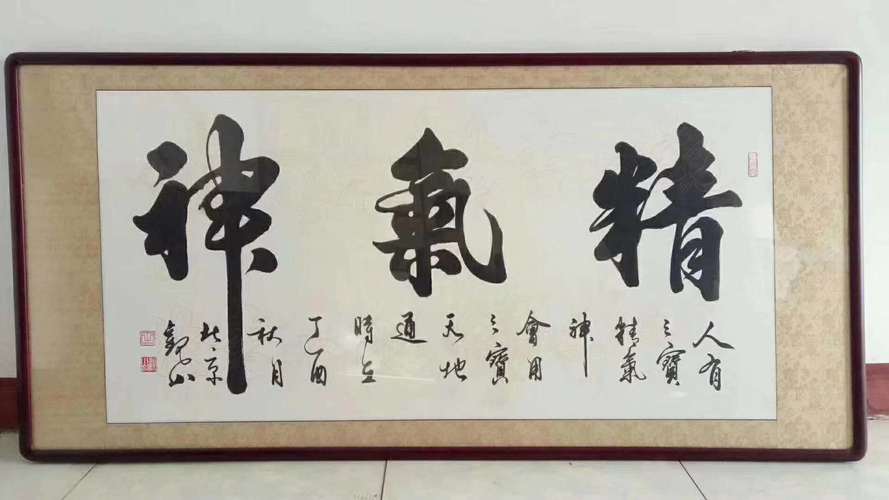 精氣神
人有
三寶
精氣
神
會用
三寶
天地
通
時在
丁酉
秋月
北京